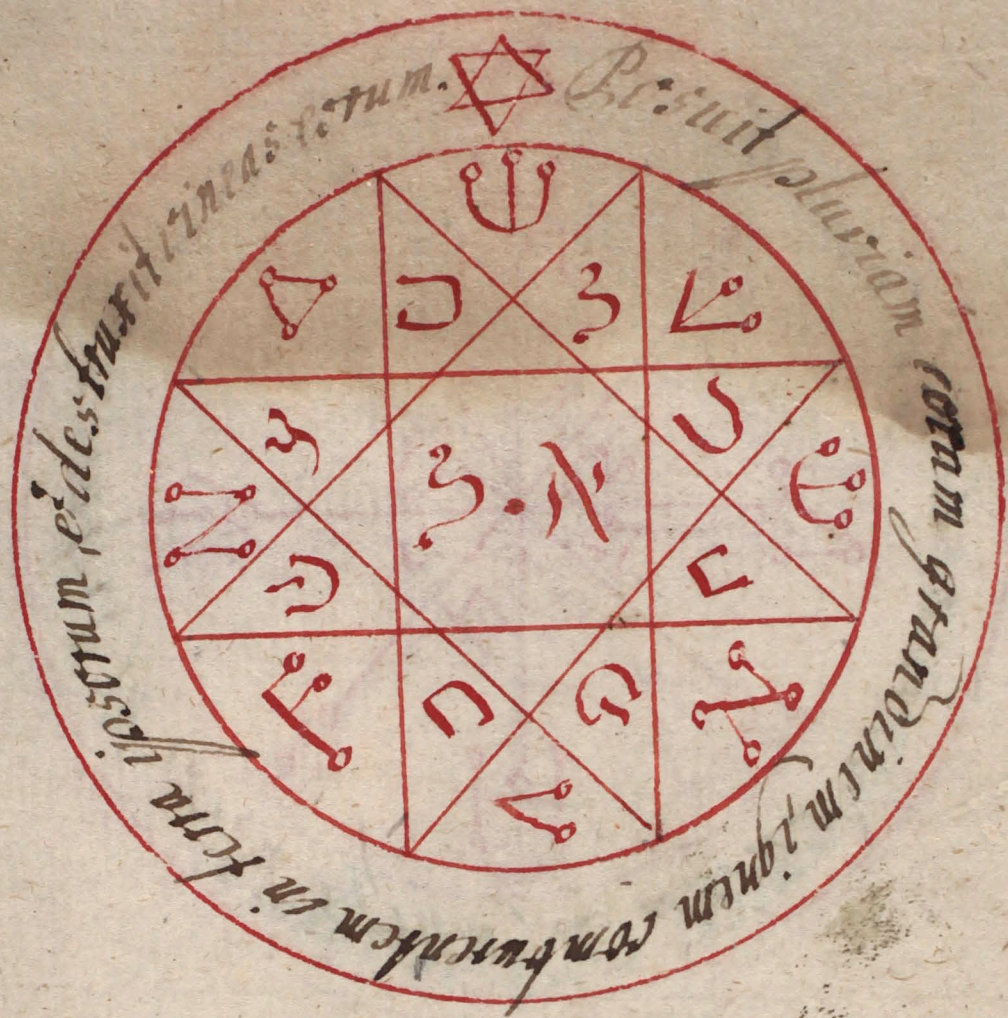 Posuit pluviam coram grandinem, ignem comburentem in terra ipsorum, et destruxit vineas eorum.
א • ל